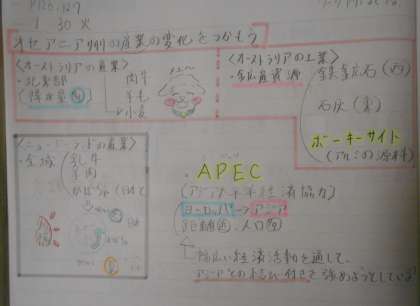 P126,127
1 30 火
オセアニア州の産業の変化をつかもう
<オーストラリアの農業>
・北東部
肉牛
羊毛
小麦
(降水量
メェ〜
<オーストラリアの工業>
・鉱産資源
鉄鉱石 (西)
石炭 (東)
ボーキサイト
(アルミの原料)
<ニュージーランドの農業>
・全域
乳牛
羊肉
・APEC
(アジア太平洋経済協力)
ヨーロッパ→アジア
幅広い経済活動を通して、
アジアとの結び付きを強めようとしている